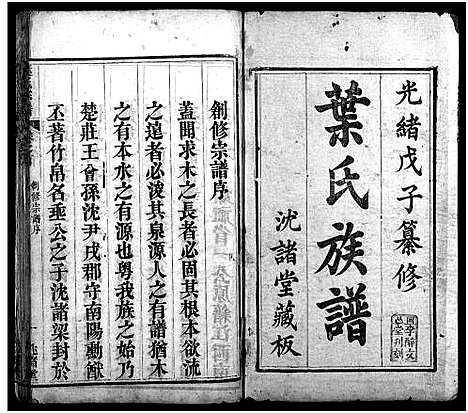 光緒戊子纂修
葉氏族譜
沈諸堂藏板
創修宗譜序
蓋聞求木之長者必固其根本欲流
之遠者必浚其泉源人之有譜猶木
之有本水之有源也粵我族之始乃
楚莊王曾孫沈尹戌郡守南陽動猷
丕著竹帛名垂公之子沈諸梁封於
創修宗譜序